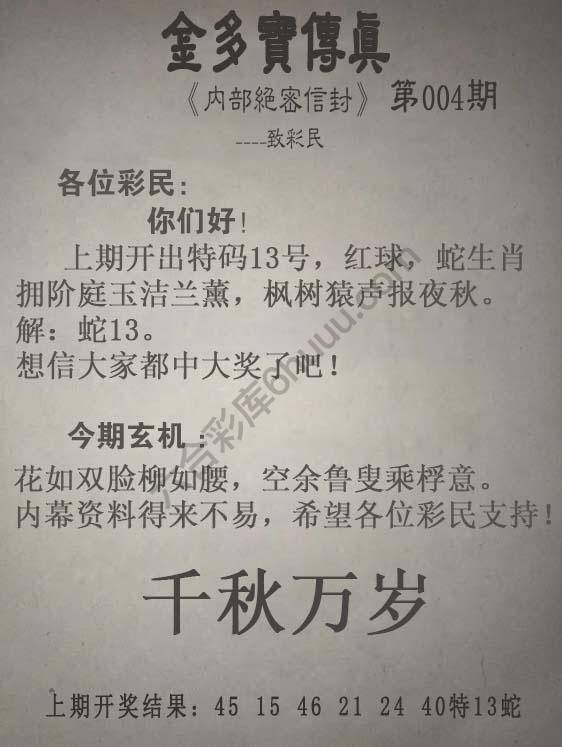 金多寶傳眞
《内部絕密信封》 第004期
----致彩民
各位彩民：
你们好！
上期开出特码13号，红球，蛇生肖
拥阶庭玉洁兰薰，枫树猿声报夜秋。
解：蛇13。
想信大家都中大奖了吧！
今期玄机：
花如双脸柳如腰，空余鲁叟乘桴意。
内幕资料得来不易，希望各位彩民支持！
千秋万岁
上期开奖结果：45 15 46 21 24 40特13蛇
六合彩库6huuu.com